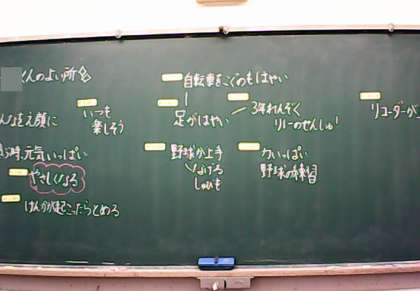 くんのよい所
自転車をこぐのもはやい
いつも
楽しそう
足がはやい
3年れんぞく
リレーのせんしゅ!
リコーダーが
んなを元気に
時、元気いっぱい
野球が上手
なげる
しゅびも
力いっぱい
野球の練習
やさしくなる
けんかが起こったらとめる